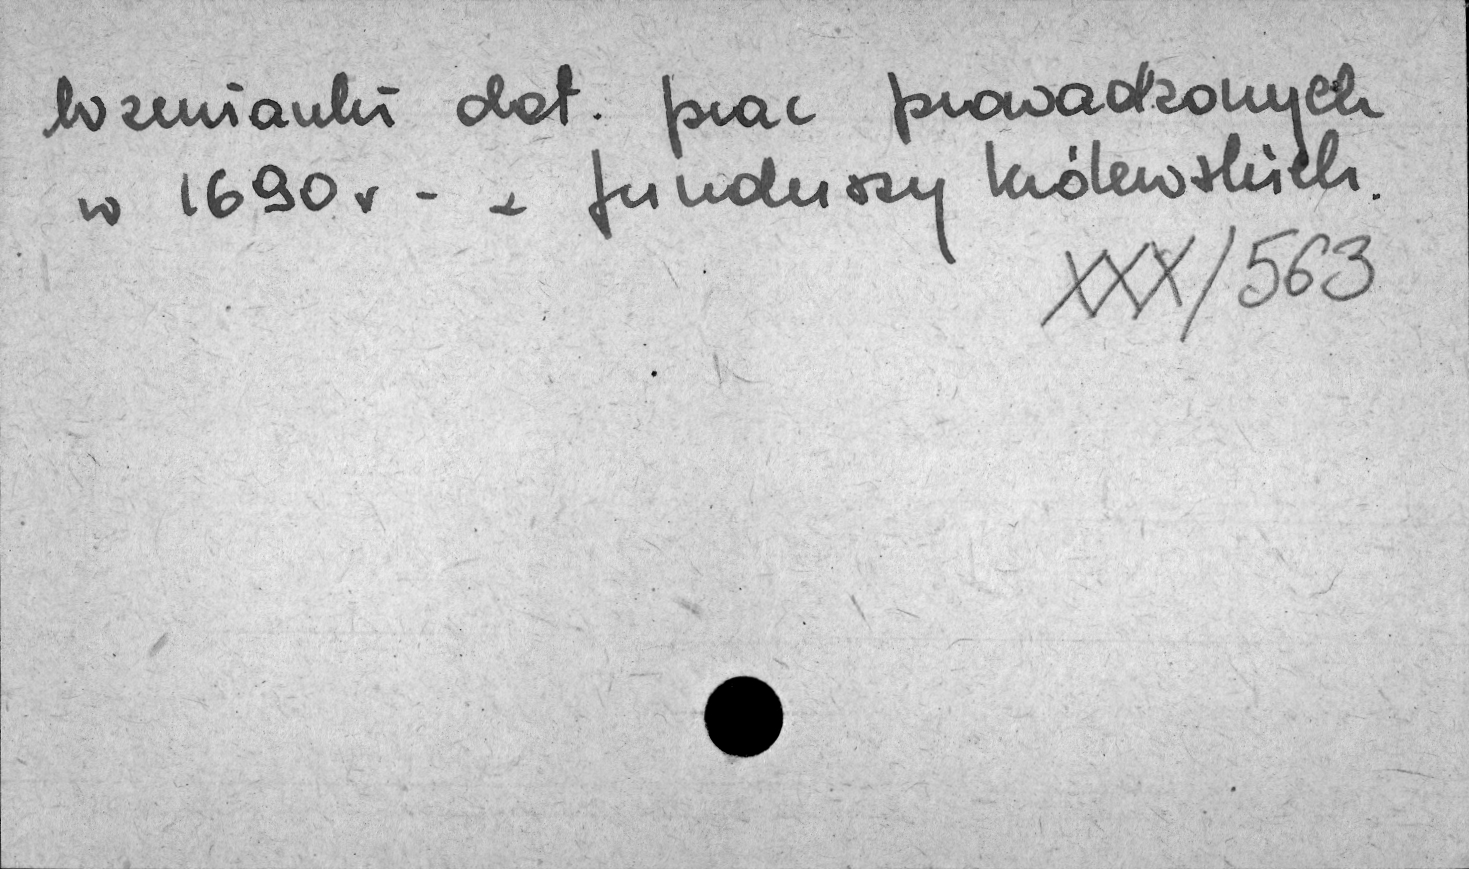 wzmianki dot. prac prowadzonych
w 1690 r - z funduszy królewskich.
XXX/563